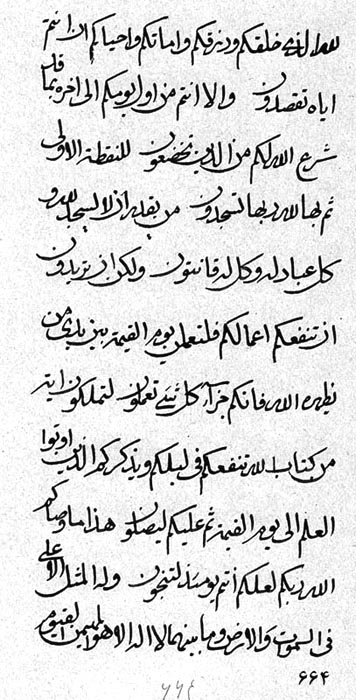 لله الذي خلقكم ورزقكم واماتكم واحياكم ان انتم
اياه تقصدون والا انتم من اول يومكم الى اخره بما قد
شرع الله لكم من الدين تخضعون للنقطة الاولى
ثم بها لله ربها لتسجدون من يقدر ان لا يسجد لله و
كل عباد له وكل له قانتون ولكن ان تريدون
ان تنفعكم اعمالكم فلتعملن يوم القيمة بين يدي من
يظهره الله فانكم جزاء كل شيء تعملون لتملكون اية
من كتاب الله تنفعكم في ليلكم ويذكركم الذين اوتوا
العلم الى يوم القيمة ثم عليكم ليصلون هذا ما وصاكم
الله ربكم لعلكم أنتم يومئذ لتنجون وله المثل الاعلى
في السموات والارض وما بينهما لا اله الا هو المهيمن القيوم
۶۶۴
۶۶٤